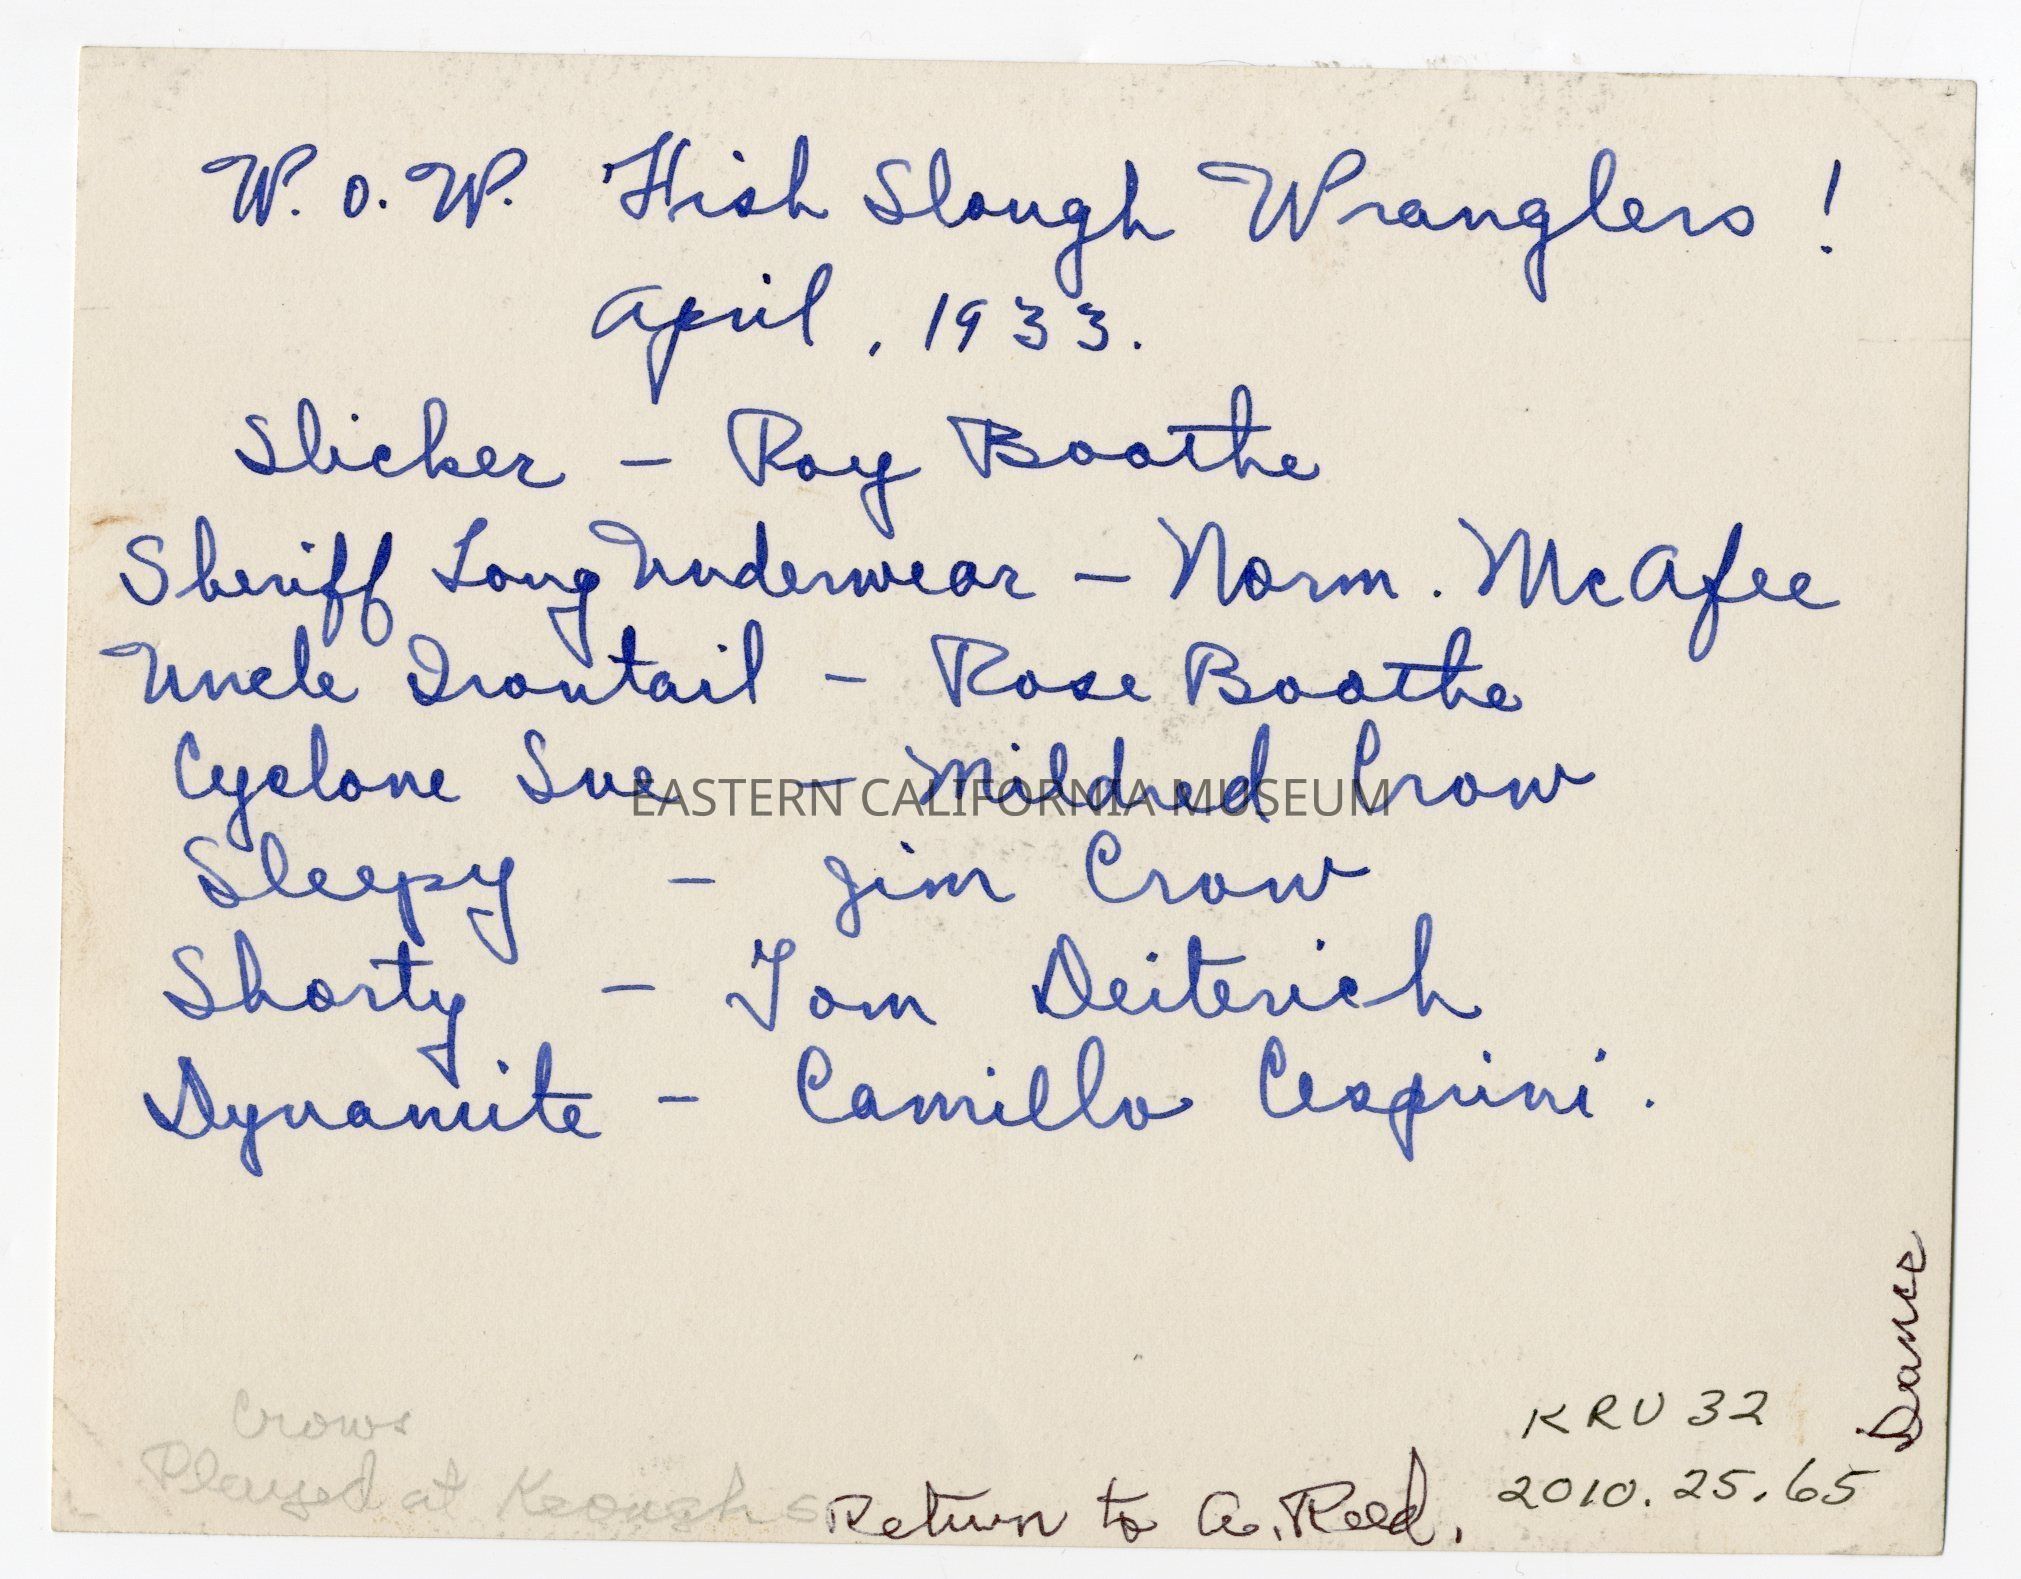 W. O. W. Fish Slough Wranglers!
April, 1933.
Slicker - Roy Boothe
Sheriff Long Underwear - Norm. McAfee
Uncle Irontail - Rose Boothe
Cyclone Sue - Mildred Crow
EASTERN CALIFORNIA MUSEUM
Sleepy - Jim Crow
Shorty - Tom Deiterich
Dynamite - Camillo Cesprini.
Crows
Played at Keoughs
Return to A. Reed.
KRU 32
2010.25.65
Dance